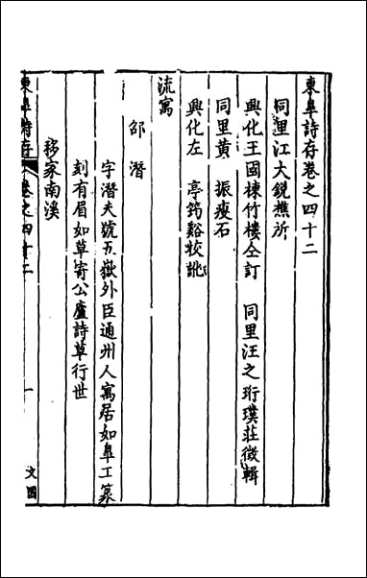 東皋詩存卷之四十二
同里江大鋭樵所
興化王國棟竹樓仝訂　同里汪之珩璞莊徵輯
同里黄　振瘦石
興化左　亭筠谿校訛
流寓
邵潛
字潛夫號五嶽外臣通州人寓居如皋工篆
刻有眉如草寄公廬詩草行世
移家南溪
東皋詩存　卷之四十二　一　文園